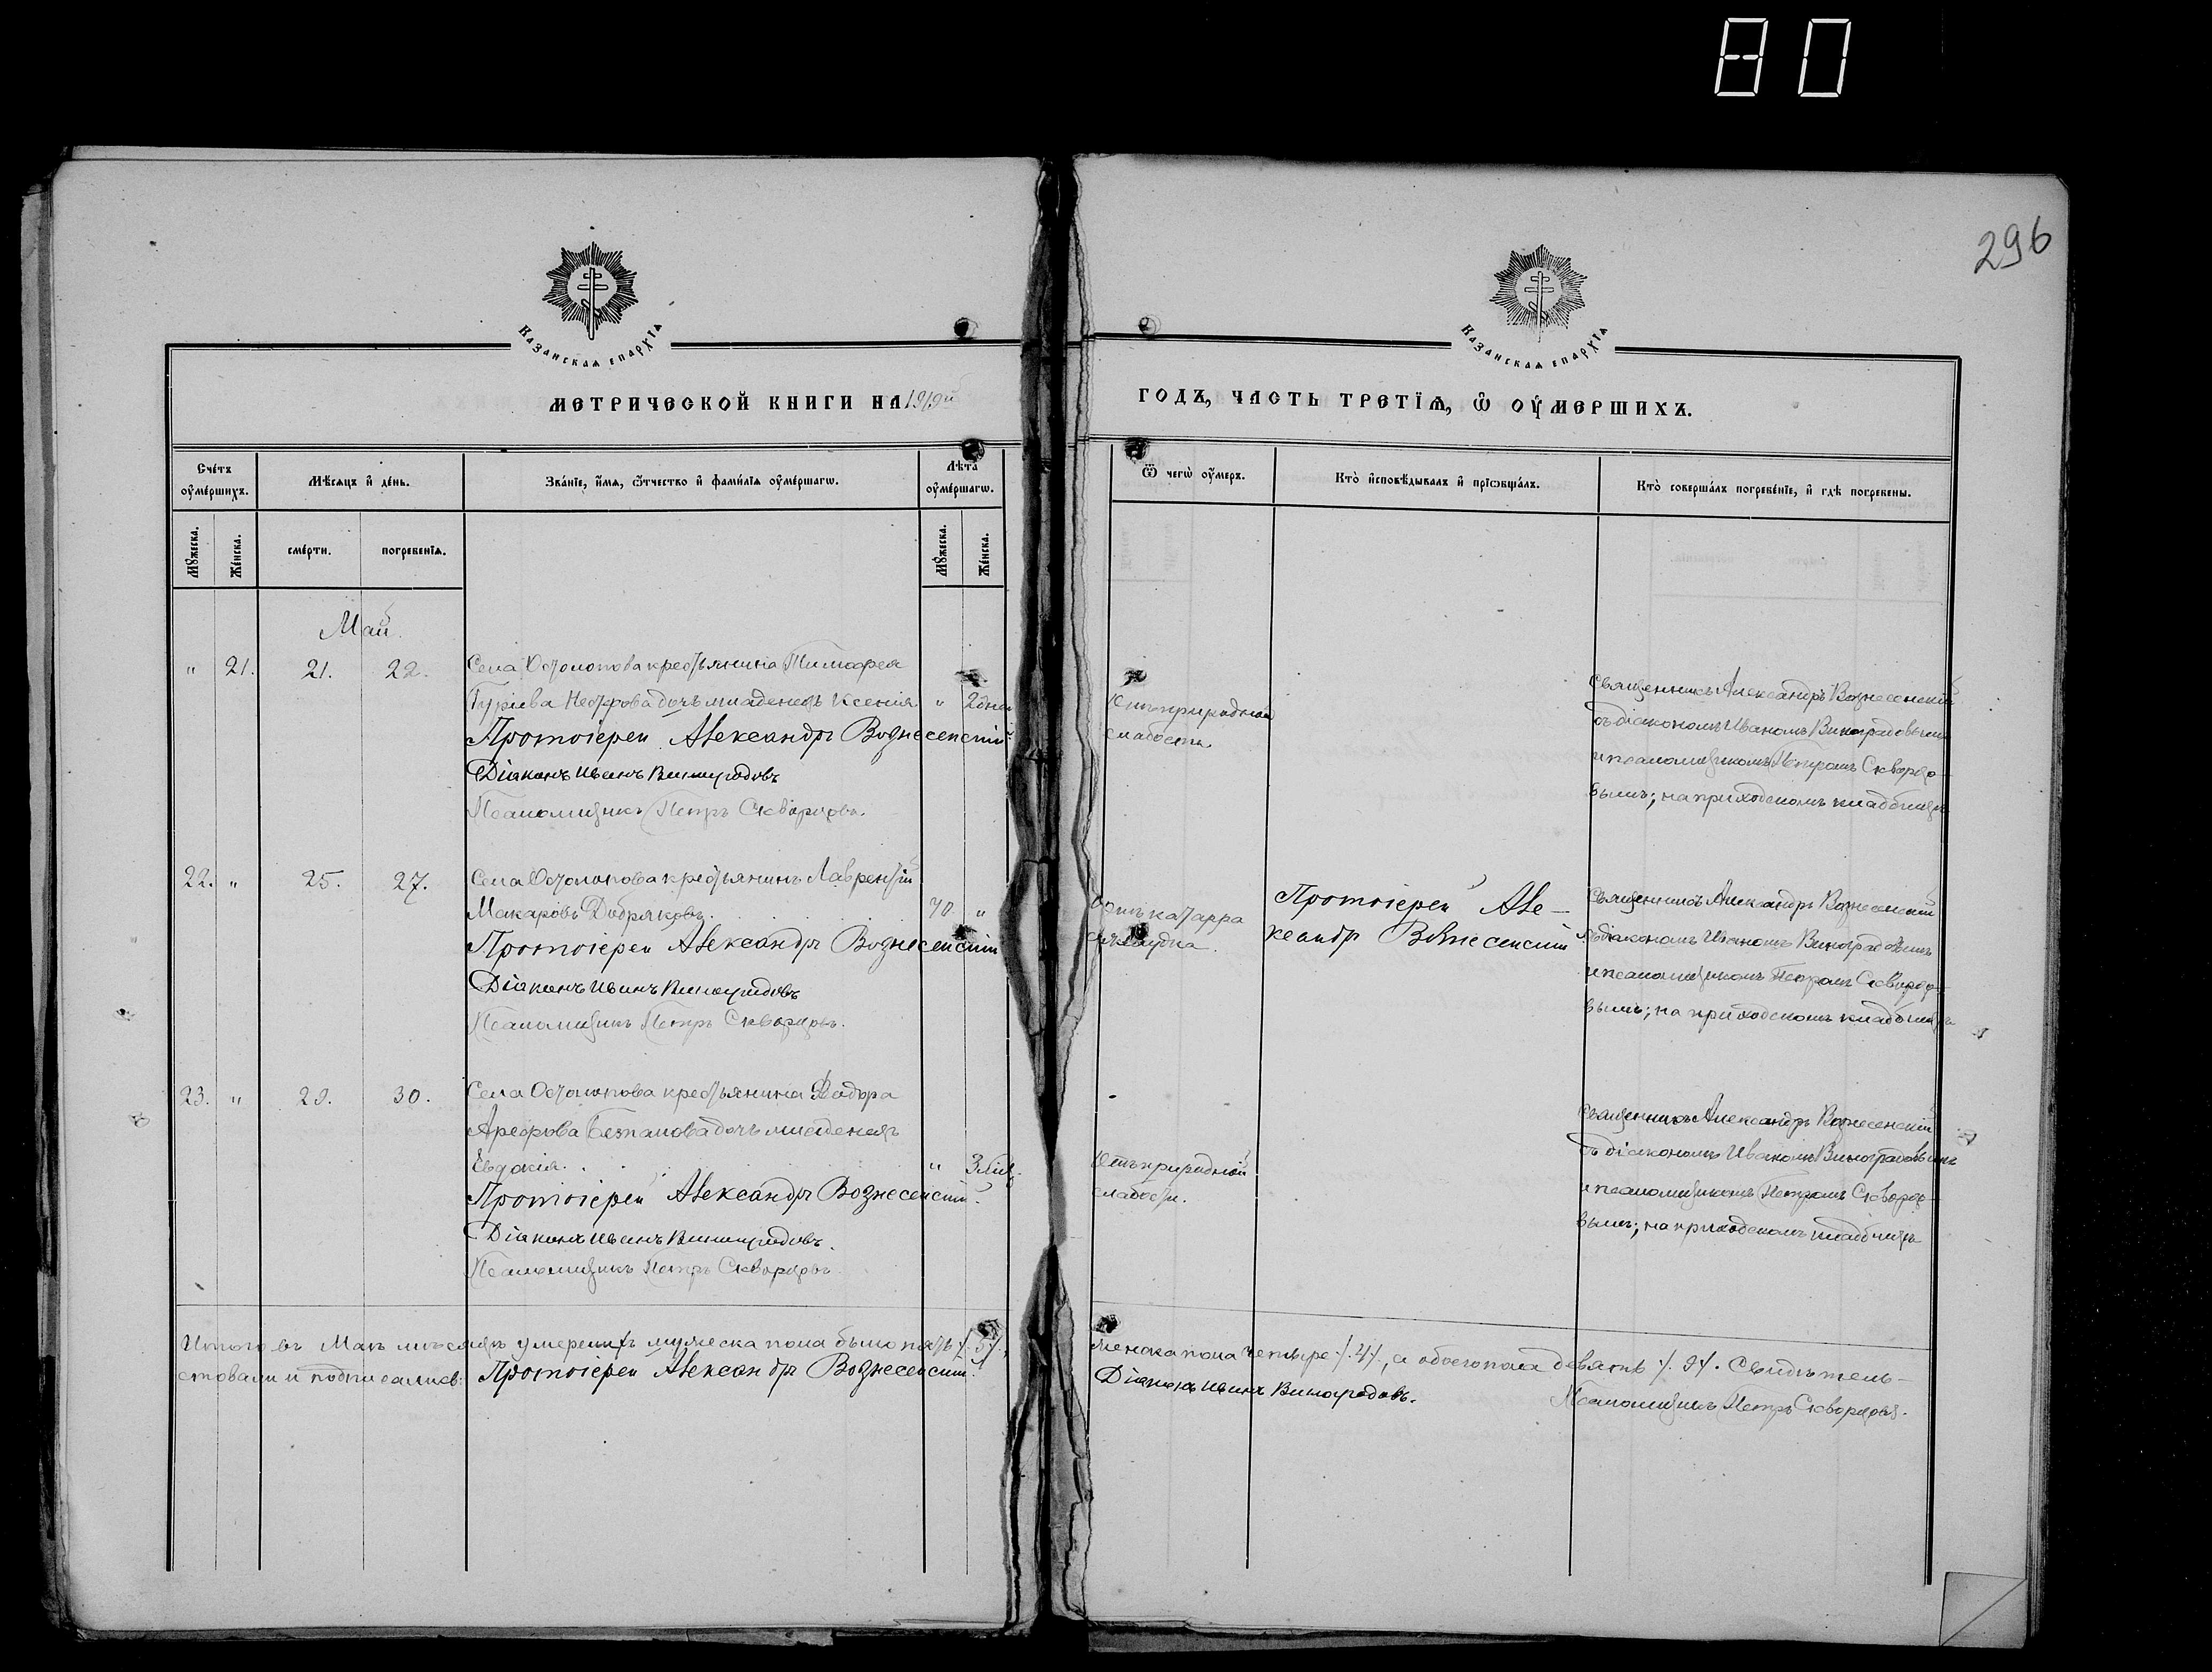 80
296
Казанская епархїа
Казанская епархїа
МЕТРИЧЕСКОЙ КНИГИ НА 1919й
ГОДЪ, ЧАСТЬ ТРЕТЇѦ, Ѽ ОУМЕРШИХЪ.
Счётъ оумершихъ.
Мѣсяцъ и день.
Званїе, имя, ѿчество и фамилїа оумершагѡ.
Лѣта оумершагѡ.
Ѿ чегѡ оумеръ.
Кто исповѣдывалъ и прїѡбщалъ.
Кто совершалъ погребенїе, и гдѣ погребены.
Мужеска.
Женска.
смерти.
погребенїа.
Мужеска.
Женска.
Май.
" 21. 21. 22. Села Остолопова крестьянина Тимофея
Гурiева Нестрова дочь младенецъ Ксенiя " 2 дней
Протоiерей Александръ Вознесенскiй
Дiаконъ Иванъ Виноградовъ
Псаломщикъ Петръ Скворцовъ.
Отъ природной
слабости.
Священникъ Александръ Вознесенскiй
съ дiакономъ Иваномъ Виноградовымъ
и псаломщикомъ Петромъ Скворцо-
вымъ; на приходскомъ кладбищѣ
22. " 25. 27. Села Остолопова крестьянинъ Лаврентiй
Макаровъ Добряковъ. 70. "
Протоiерей Александръ Вознесенскiй
Дiаконъ Иванъ Виноградовъ
Псаломщикъ Петръ Скворцовъ.
Отъ катарра
желудка.
Протоiерей Але-
ксандръ Вознесенскiй
Священникъ Александръ Вознесенскiй
съ дiакономъ Иваномъ Виноградовымъ
и псаломщикомъ Петромъ Скворцо-
вымъ; на приходскомъ кладбищѣ
23. " 29. 30. Села Остолопова крестьянина Ѳедора
Арефова дочь младенецъ
Евдокiя. " 3 мѣс.
Протоiерей Александръ Вознесенскiй.
Дiаконъ Иванъ Виноградовъ.
Псаломщикъ Петръ Скворцовъ.
Отъ природной
слабости.
Священникъ Александръ Вознесенскiй
съ дiакономъ Иваномъ Виноградовымъ
и псаломщикомъ Петромъ Скворцо-
вымъ; на приходскомъ кладбищѣ
Итого въ Маѣ мѣсяцѣ умершихъ мужеска пола было пять /. 5 /.,
женска пола четыре /. 4 /., а обоего пола девять /. 9 /. Свидѣтель-
ствовали и подписались: Протоiерей Александръ Вознесенскiй.
Дiаконъ Иванъ Виноградовъ.
Псаломщикъ Петръ Скворцовъ.